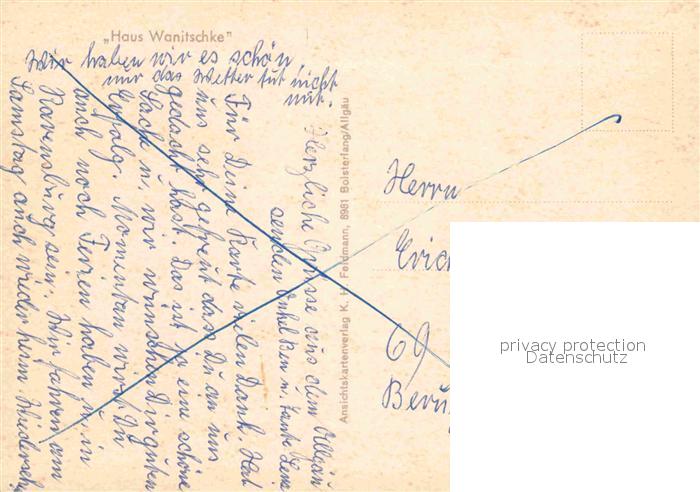 „Haus Wanitschke"
Wir haben wir es schön
nur das Wetter tut nicht
mit.
Herzliche Grüsse aus dem Allgäu
senden Onkel Ben u. Tante Lens
Für Deine Karte vielen Dank. Hat
uns sehr gefreut dass Du an uns
gedacht hast. Das ist ja eine schöne
Sache u. wir wünschen Dir guten
Erfolg. Momentan wirst Du
auch noch Ferien haben u. in
Ravensburg sein. Wir fahren am
Samstag auch wieder heim. Wiederseh
Ansichtskartenverlag K. H. Feldmann, 8981 Bolsterlang/Allgäu
Herrn
Eric
69
Beru
privacy protection
Datenschutz